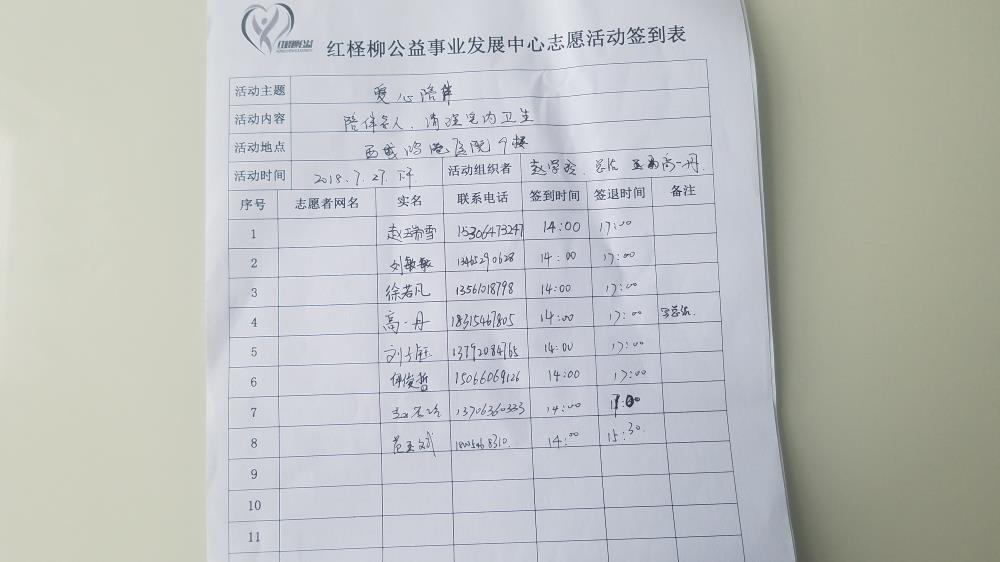 红柽柳公益
红柽柳公益事业发展中心志愿活动签到表
活动主题 爱心陪伴
活动内容 陪伴老人、清理室内卫生
活动地点 西城 医院9楼
活动时间 2018.7.27.下午 活动组织者 赵学玲. 总结 高一丹.
序号 志愿者网名 实名 联系电话 签到时间 签退时间 备注
1 赵瑞雪 15306473247 14:00 17:00
2 刘敏敏 13465290628 14:00 17:00
3 徐若凡 13561018798 14:00 17:00
4 高一丹 18315467805 14:00 17:00 写总结.
5 刘子钰 13792084765 14:00 17:00
6 俊哲 15066069126 14:00 17:00
7 13706360333 14:00 17:00
8 范玉斌 14:00 15:30.
9
10
11